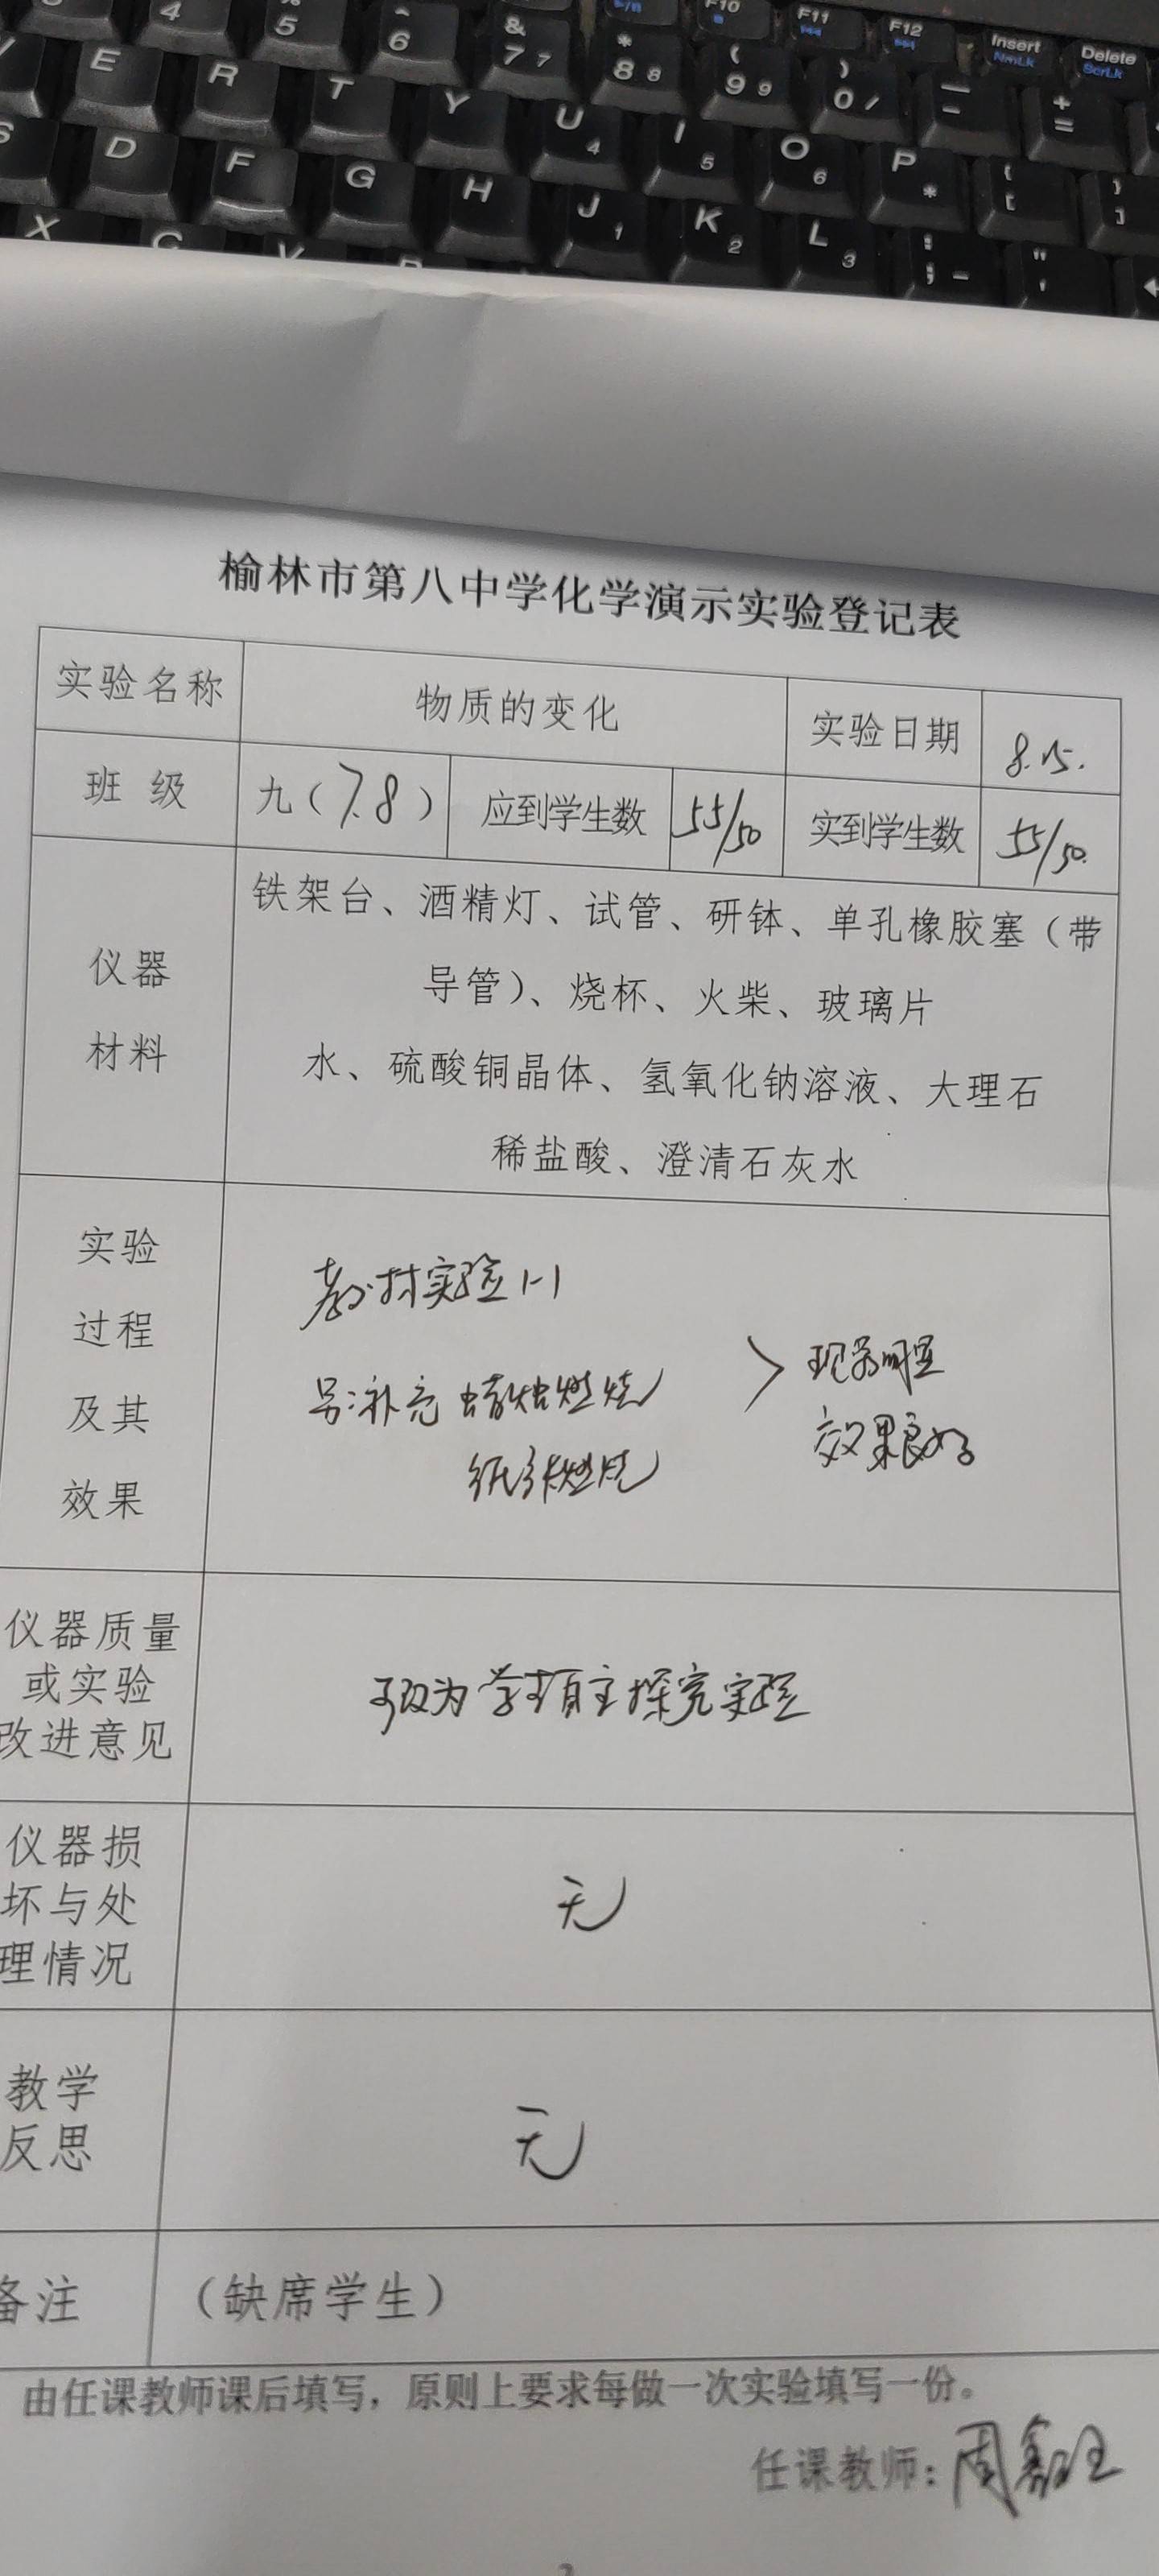 4 5 6 & 7 7 * 8 8 ( 9 9 ) 0 / — - + =
F10 F11 F12 Insert NmLk Delete ScrLk
E R T Y U 4 I 5 O 6 P * { [ } ]
S D F G H J 1 K 2 L 3 : ; - " '
X C V B
榆林市第八中学化学演示实验登记表
实验名称 物质的变化 实验日期 8.15.
班 级 九（7.8） 应到学生数 55/50 实到学生数 55/50.
仪器
材料
铁架台、酒精灯、试管、研钵、单孔橡胶塞（带
导管）、烧杯、火柴、玻璃片
水、硫酸铜晶体、氢氧化钠溶液、大理石
稀盐酸、澄清石灰水
实验
过程
及其
效果
教材实验1-1
另:补充 蜡烛燃烧
纸张燃烧
> 现象明显
效果良好
仪器质量
或实验
改进意见
可改为学生自主探究实验
仪器损
坏与处
理情况
无
教学
反思
无
备注 （缺席学生）
由任课教师课后填写，原则上要求每做一次实验填写一份。
任课教师：周